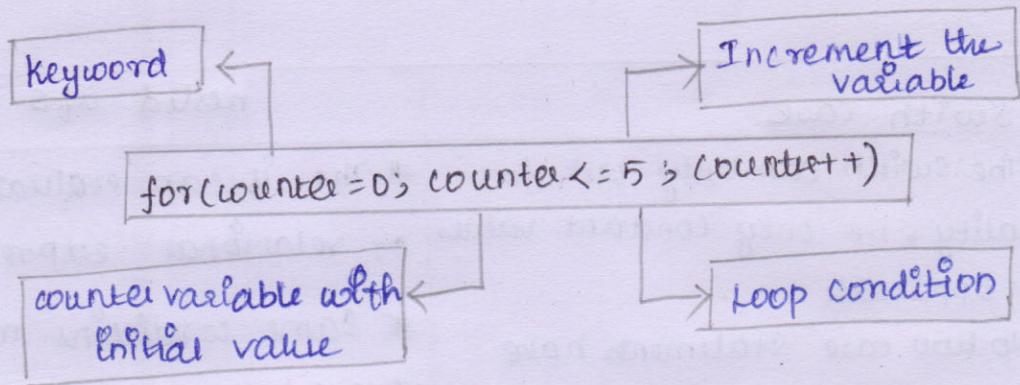 Keyword
Increment the
variable
for(counter=0; counter<=5; counter++)
counter variable with
initial value
Loop condition